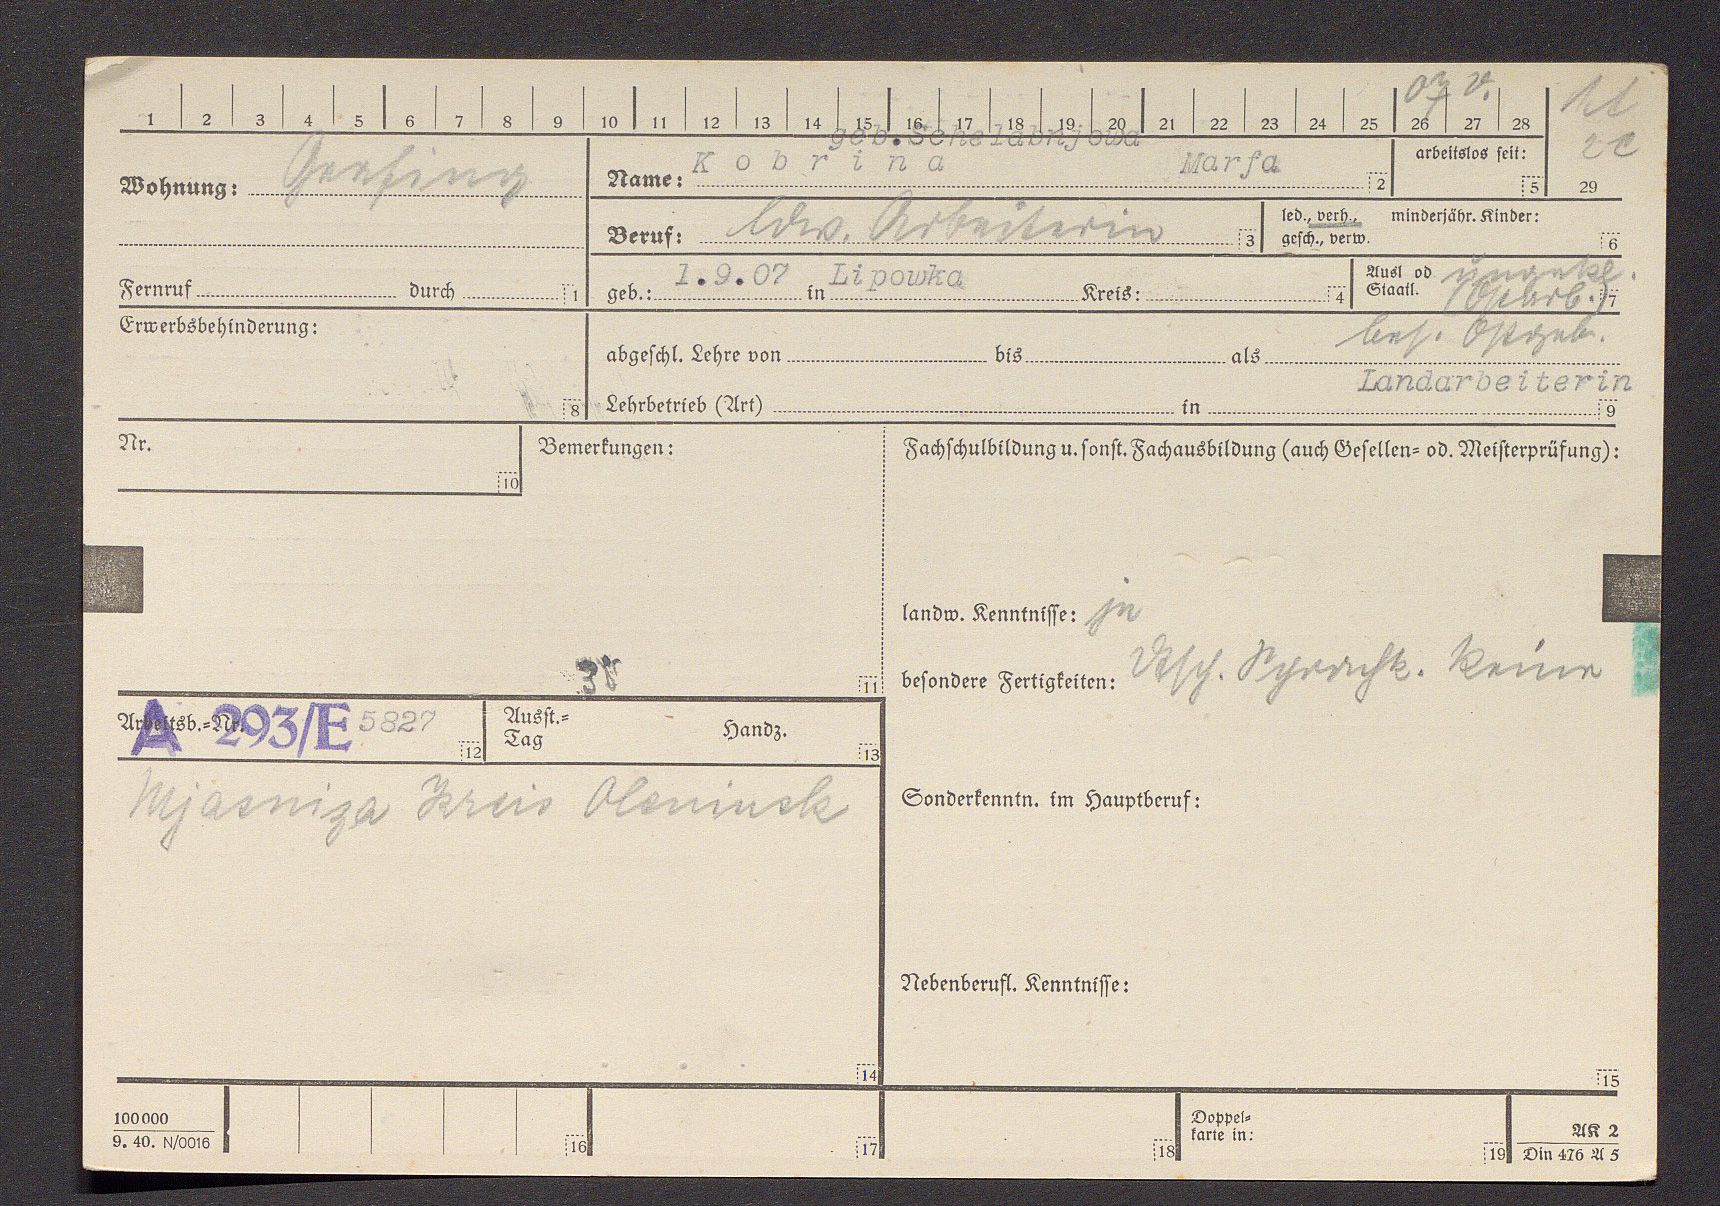 1 2 3 4 5 6 7 8 9 10 11 12 13 14 15 16 17 18 19 20 21 22 23 24 25 26 27 28
29
arbeitslos seit: 5
geb. Schelabnjowa
Wohnung:
Name: Kobrina Marfa 2
Beruf: ldw. Arbeiterin 3
led., verh., gesch., verw.
minderjähr. Kinder: 6
Fernruf durch 1
geb.: 1.9.07 in Lipowka Kreis: 4
Ausl od Staatl. ungekl. (Ostarb.) 7
bes. Ostgeb.
Erwerbsbehinderung: 8
abgeschl. Lehre von bis als
Landarbeiterin
Lehrbetrieb (Art) in 9
Nr. 10
Bemerkungen:
11
Fachschulbildung u. sonst. Fachausbildung (auch Gesellen- od. Meisterprüfung):
landw. Kenntnisse: ja
besondere Fertigkeiten: Dtsch. Sprachk. keine
Arbeitsb.-Nr. A 293/E 5827 12
Ausst.-Tag Handz. 13
Mjasniza Kreis Oleninsk
14
Sonderkenntn. im Hauptberuf:
Nebenberufl. Kenntnisse:
15
100000
9. 40. N/0016
16 17 18
Doppel-
karte in: 19
AK 2
Din 476 A 5